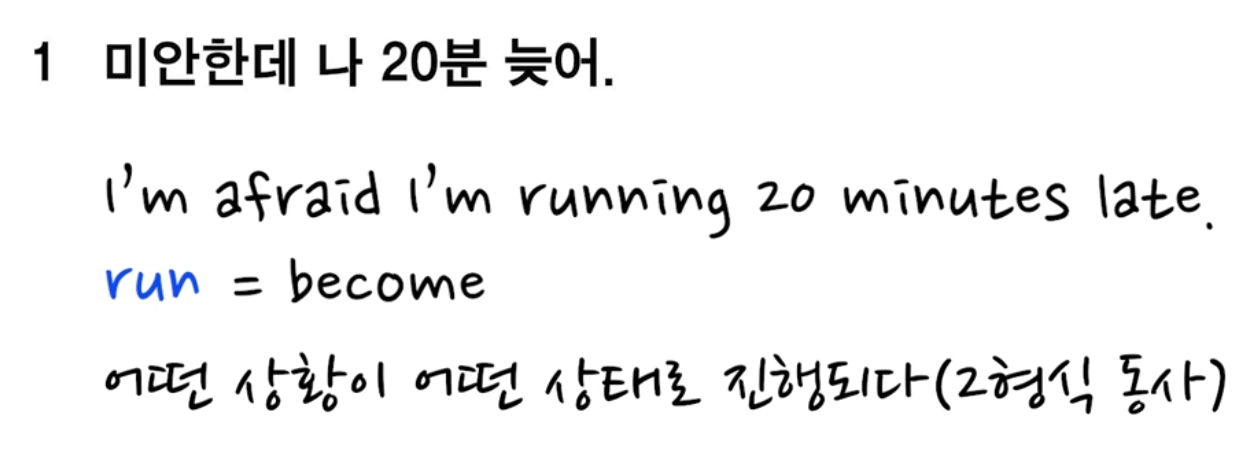 1 미안한데 나 20분 늦어.
I'm afraid I'm running 20 minutes late.
run = become
어떤 상황이 어떤 상태로 진행되다(2형식 동사)